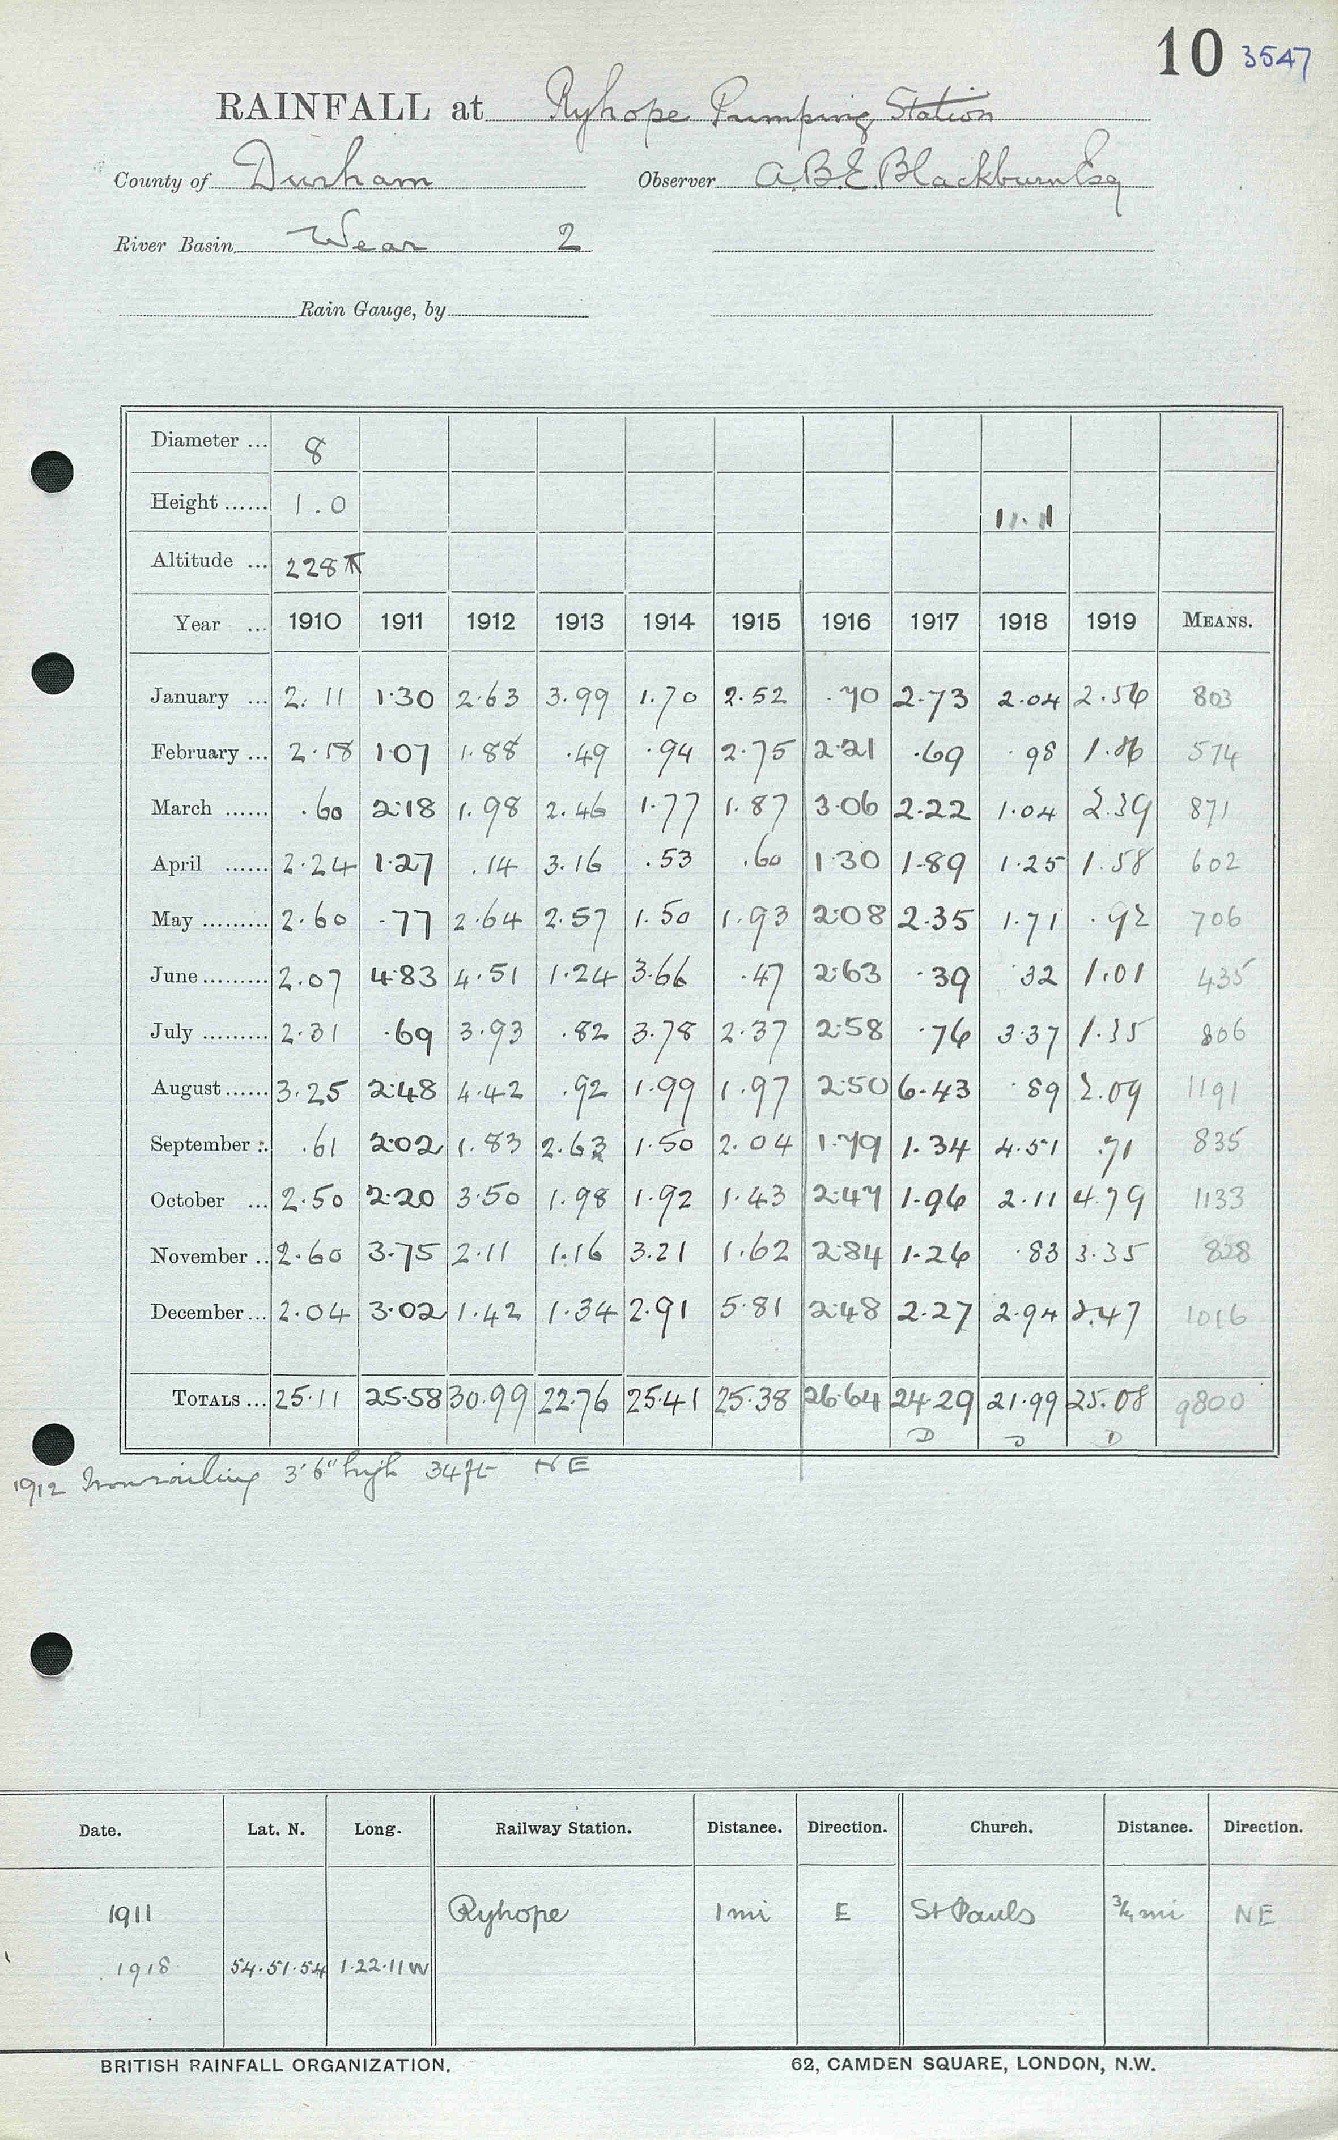 10 3547
RAINFALL at Ryhope Pumping Station
County of Durham Observer A.B.E. Blackburn Esq
River Basin Wear 2
Rain Gauge, by
Diameter ... 8
Height ...... 1.0 11.11
Altitude ... 228
Year ... 1910 1911 1912 1913 1914 1915 1916 1917 1918 1919 MEANS.
January ... 2.11 1.30 2.63 3.99 1.70 2.52 .70 2.73 2.04 2.56 803
February ... 2.18 1.07 1.88 .49 .94 2.75 2.21 .69 .98 1.86 574
March ...... .60 2.18 1.98 2.46 1.77 1.87 3.06 2.22 1.04 2.39 871
April ...... 2.24 1.27 .14 3.16 .53 .60 1.30 1.89 1.25 1.58 602
May ......... 2.60 .77 2.64 2.57 1.50 1.93 2.08 2.35 1.71 .92 706
June ......... 2.07 4.83 4.51 1.24 3.66 .47 2.63 .39 .32 1.01 435
July ......... 2.31 .69 3.93 .82 3.78 2.37 2.58 .76 3.37 1.35 806
August ...... 3.25 2.48 4.42 .92 1.99 1.97 2.50 6.43 .89 2.09 1191
September .. .61 2.02 1.83 2.63 1.50 2.04 1.79 1.34 4.51 .71 835
October ... 2.50 2.20 3.50 1.98 1.92 1.43 2.47 1.96 2.11 4.79 1133
November .. 2.60 3.75 2.11 1.16 3.21 1.62 2.84 1.26 .83 3.35 828
December ... 2.04 3.02 1.42 1.34 2.91 5.81 2.48 2.27 2.94 2.47 1016
TOTALS ... 25.11 25.58 30.99 22.76 25.41 25.38 26.64 24.29 21.99 25.08 9800
D D D
1912 Iron railing 3'6" high 34ft NE
Date. Lat. N. Long. Railway Station. Distance. Direction. Church. Distance. Direction.
1911 Ryhope 1 mi E St Pauls 3/4 mi NE
1918 54.51.54 1.22.11W
BRITISH RAINFALL ORGANIZATION. 62, CAMDEN SQUARE, LONDON, N.W.